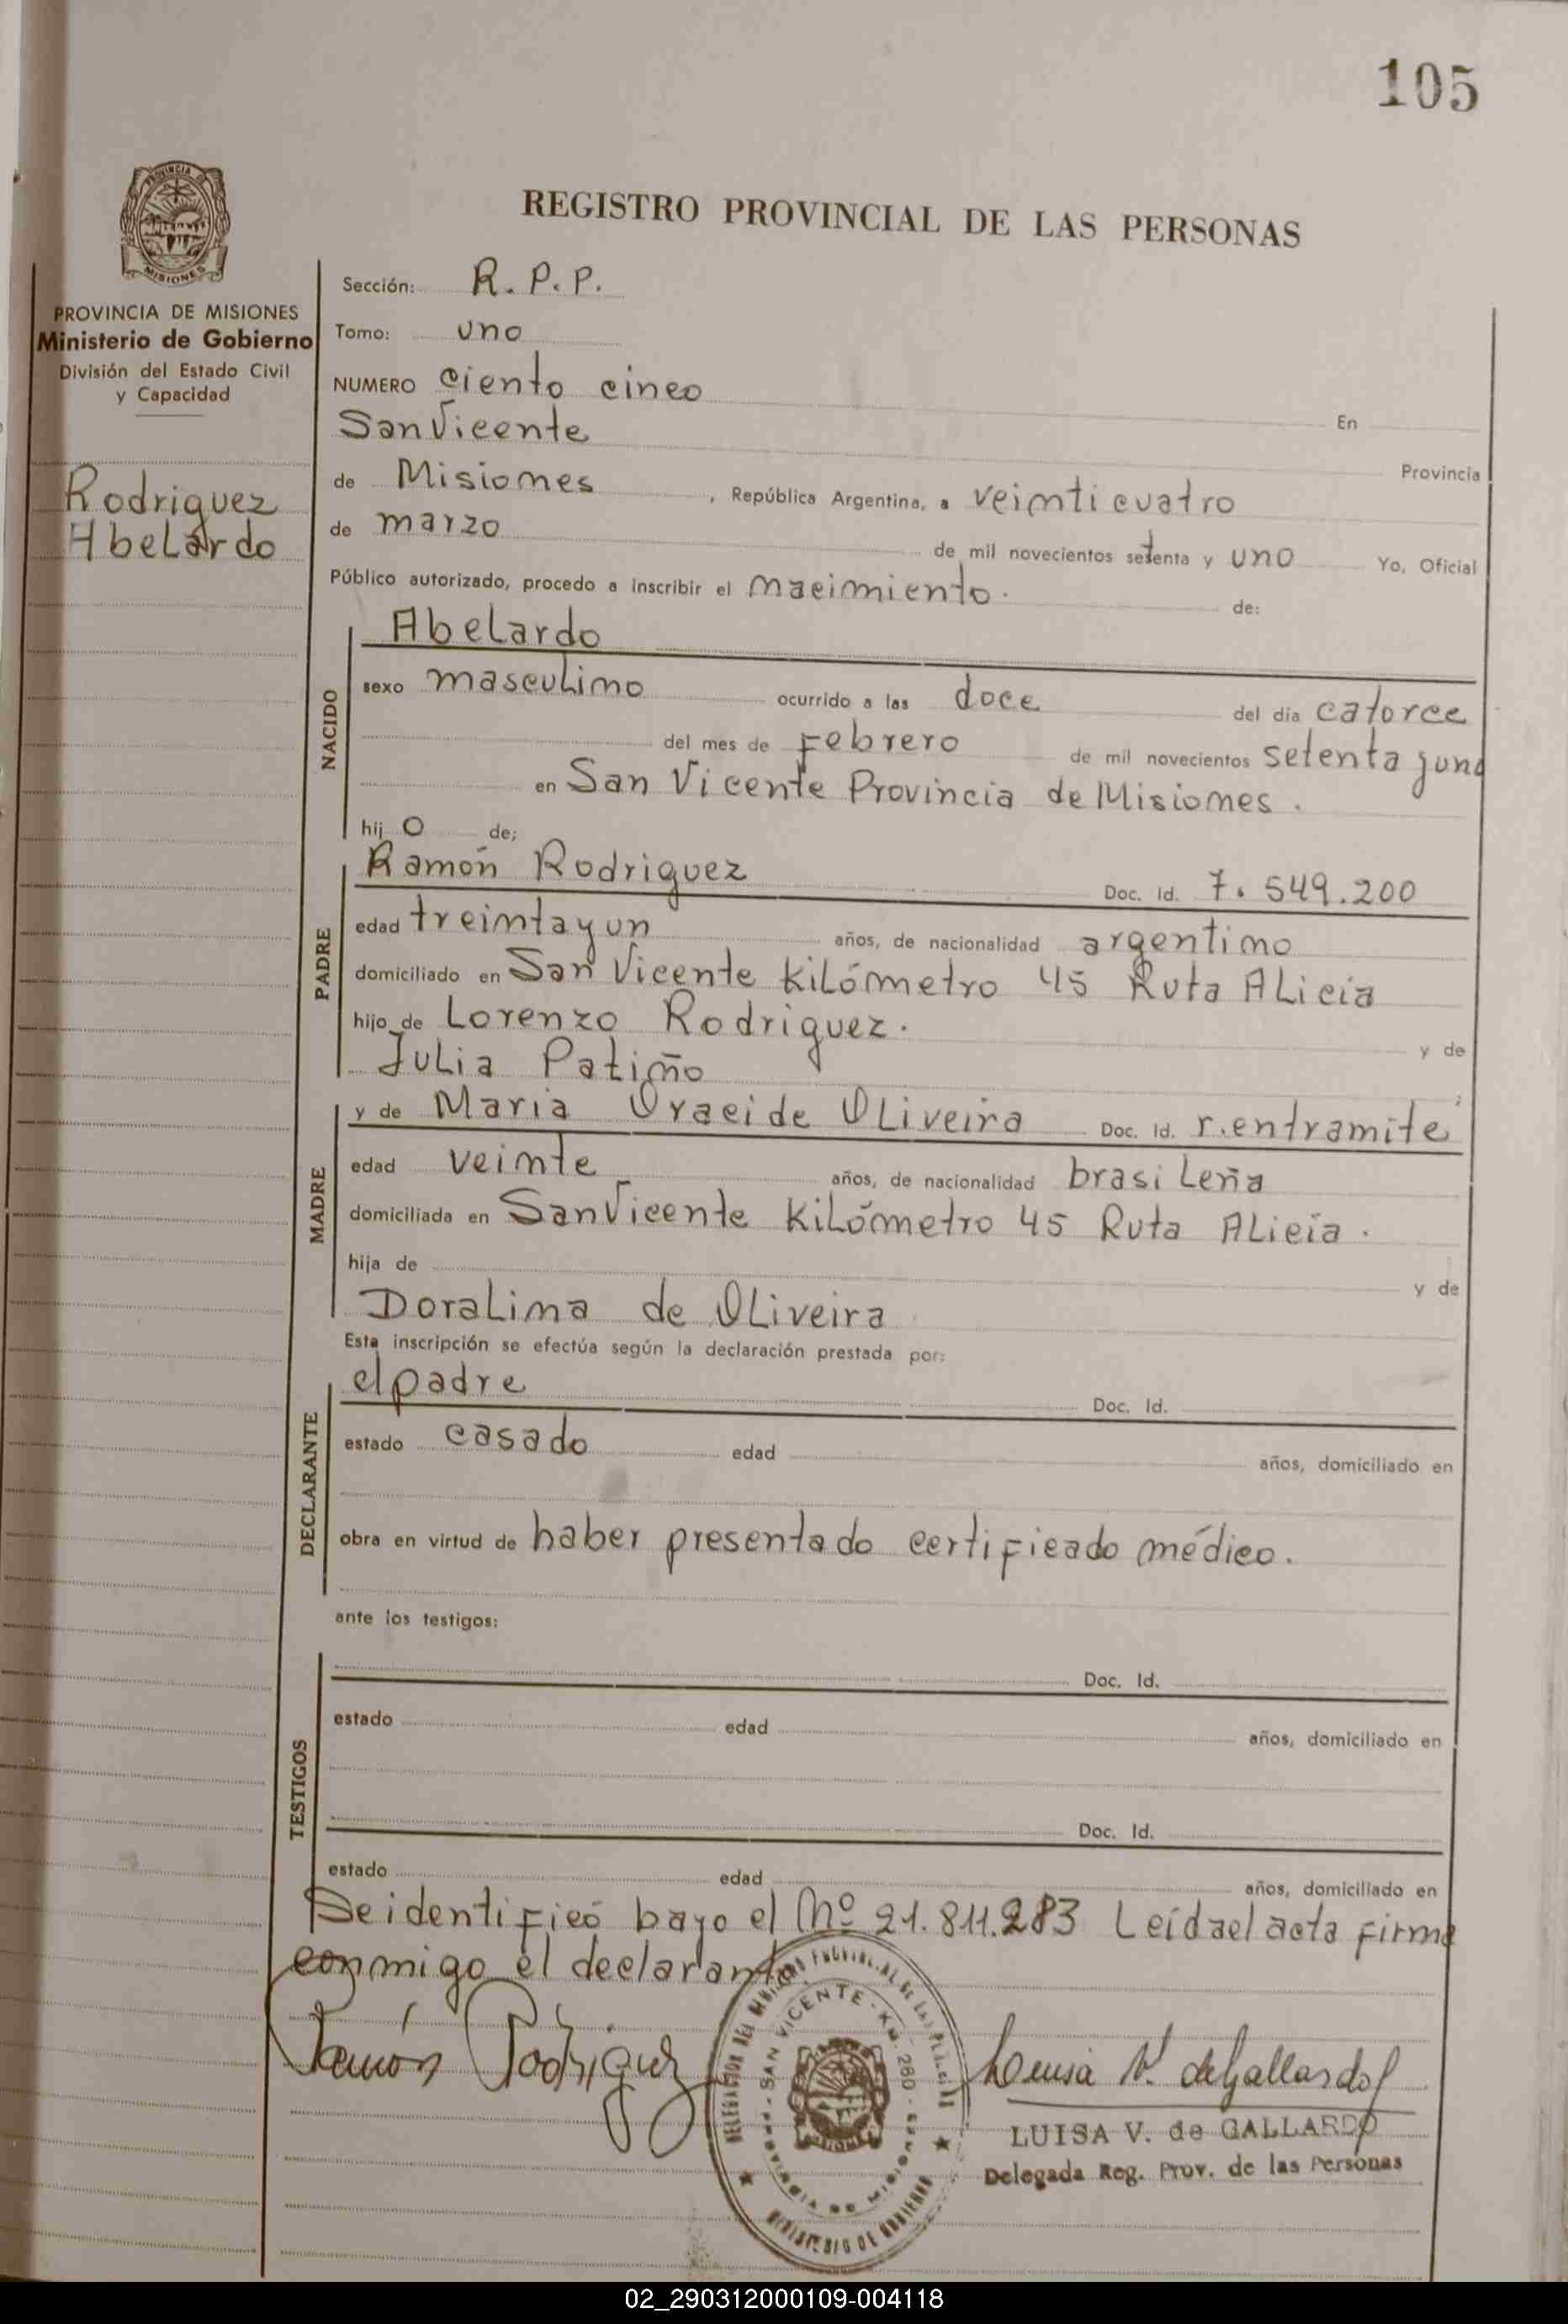 105
REGISTRO PROVINCIAL DE LAS PERSONAS
PROVINCIA DE MISIONES
Ministerio de Gobierno
División del Estado Civil
y Capacidad
Rodriguez
Abelardo
Sección: R. P. P.
Tomo: uno
NUMERO ciento cinco
En
San Vicente
Provincia
de Misiones, República Argentina, a veinticuatro
de marzo de mil novecientos setenta y uno Yo, Oficial
Público autorizado, procedo a inscribir el nacimiento. de:
NACIDO
Abelardo
sexo masculino ocurrido a las doce del día catorce
del mes de Febrero de mil novecientos setenta y uno
en San Vicente Provincia de Misiones.
hij o de;
PADRE
Ramón Rodriguez Doc. Id. 7.549.200
edad treinta y un años, de nacionalidad argentino
domiciliado en San Vicente Kilómetro 45 Ruta Alicia
hijo de Lorenzo Rodriguez. y de
Julia Patiño
MADRE
y de Maria Oraeide Oliveira Doc. Id. r. en tramite
edad veinte años, de nacionalidad brasileña
domiciliada en San Vicente Kilómetro 45 Ruta Alicia.
hija de y de
Doralina de Oliveira
Esta inscripción se efectúa según la declaración prestada por:
DECLARANTE
el padre Doc. Id.
estado casado edad años, domiciliado en
obra en virtud de haber presentado certificado médico.
ante los testigos:
TESTIGOS
Doc. Id.
estado edad años, domiciliado en
Doc. Id.
estado edad años, domiciliado en
Se identificó bajo el Nº 21.811.283 Leída el acta firma
conmigo el declarante
Ramón Rodriguez
Luisa V. de Gallardo
LUISA V. de GALLARDO
Delegada Reg. Prov. de las Personas
SAN VICENTE - Km. 280
PROVINCIA DE MISIONES
MINISTERIO DE GOBIERNO
02_290312000109-004118